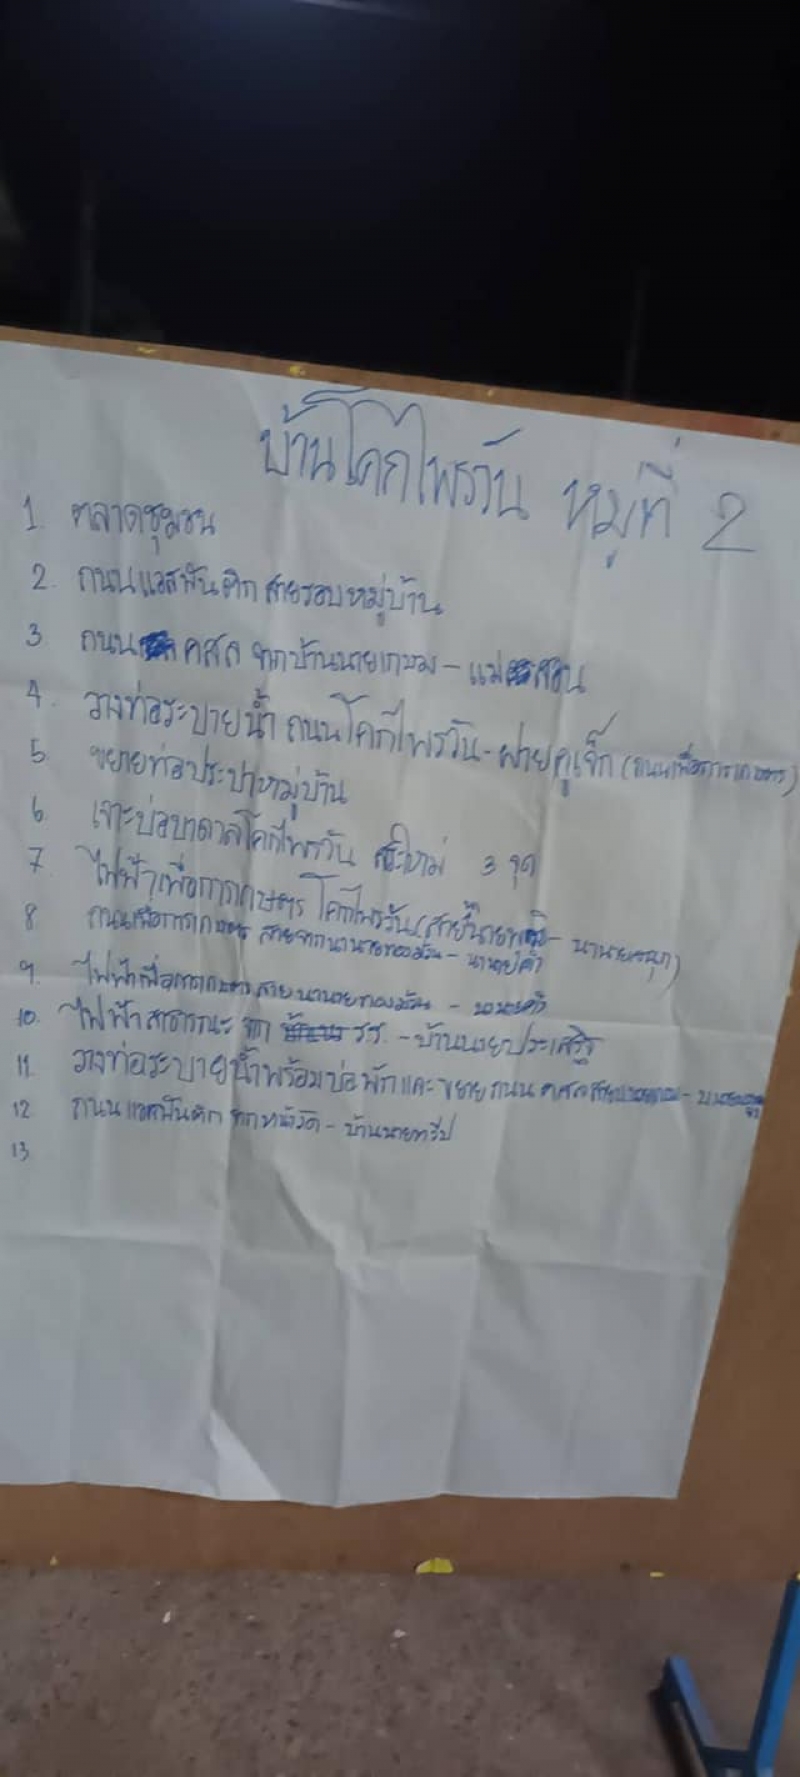 บ้านโคกไพรวัน หมู่ที่ 2
1 ตลาดชุมชน
2. ถนนแอสฟันติก สายรอบหมู่บ้าน
3 ถนน คสล จากบ้านนายเกษม - แม่สอน
4. วางท่อระบายน้ำ ถนนโคกไพรวัน - ฝายคูเจ็ก (ถนนเพื่อการเกษตร)
5 ขยายท่อประปาหมู่บ้าน
6 เจาะบ่อบาดาลโคกไพรวัน สระใหม่ 3 จุด
7 ไฟฟ้าเพื่อการเกษตร โคกไพรวัน - นานาย
8 ถนนเพื่อการเกษตร สายจากนานายทองม้วน - นานายคำ
9. ไฟฟ้าเพื่อการเกษตร สายนานายทองม้วน - นานายคำ
10. ไฟฟ้าสาธารณะ จาก ร.ร. - บ้านนายประเสริฐ
11 วางท่อระบายน้ำพร้อมบ่อพักและขยายถนน คสล สาย
12 ถนนแอสฟันติก จากหน้าวัด - บ้านนายทวีป
13